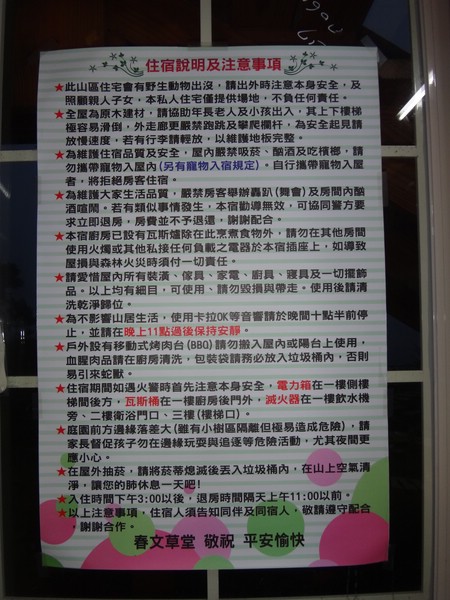 住宿說明及注意事項
★此山區住宅會有野生動物出沒，請出外時注意本身安全，及
照顧親人子女，本私人住宅僅提供場地，不負任何責任。
★全屋為原木建材，請協助年長老人及小孩出入，其上下樓梯
極容易滑倒，外走廊更嚴禁跑跳及攀爬欄杆，為安全起見請
放慢速度，若有行李請輕放，以維護地板完整。
★為維護住宿品質及安全，屋內嚴禁吸菸、酗酒及吃檳榔，請
勿攜帶寵物入屋內(另有寵物入宿規定)。自行攜帶寵物入屋
者，將拒絕房客住宿。
★為維護大家生活品質，嚴禁房客舉辦轟趴(舞會)及房間內酗
酒喧鬧。若有類似事情發生，本宿勸導無效，可協同警方要
求立即退房，房費並不予退還，謝謝配合。
★本宿廚房已設有瓦斯爐除在此烹煮食物外，請勿在其他房間
使用火燭或其他私接任何負載之電器於本宿插座上，如導致
屋損與森林火災時須付一切責任。
★請愛惜屋內所有裝潢、傢具、家電、廚具、寢具及一切擺飾
品。以上均有細目，可使用、請勿毀損與帶走。使用後請清
洗乾淨歸位。
★為不影響山居生活，使用卡拉OK等音響請於晚間十點半前停
止，並請在晚上11點過後保持安靜。
★戶外設有移動式烤肉台(BBQ)請勿搬入屋內或陽台上使用，
血腥肉品請在廚房清洗，包裝袋請務必放入垃圾桶內，否則
易引來蛇獸。
★住宿期間如遇火警時首先注意本身安全，電力箱在一樓側樓
梯間後方，瓦斯桶在一樓廚房後門外，滅火器在一樓飲水機
旁、二樓衛浴門口、三樓(樓梯口)。
★庭園前方邊緣落差大(雖有小樹區隔離但極易造成危險)，請
家長督促孩子勿在邊緣玩耍與追逐等危險活動，尤其夜間更
應小心。
★在屋外抽菸，請將菸蒂熄滅後丟入垃圾桶內，在山上空氣清
淨，讓您的肺休息一天吧!
★入住時間下午3:00以後，退房時間隔天上午11:00以前。
★以上注意事項，住宿人須告知同伴及同宿人，敬請遵守配合
。謝謝合作。
春文草堂 敬祝 平安愉快